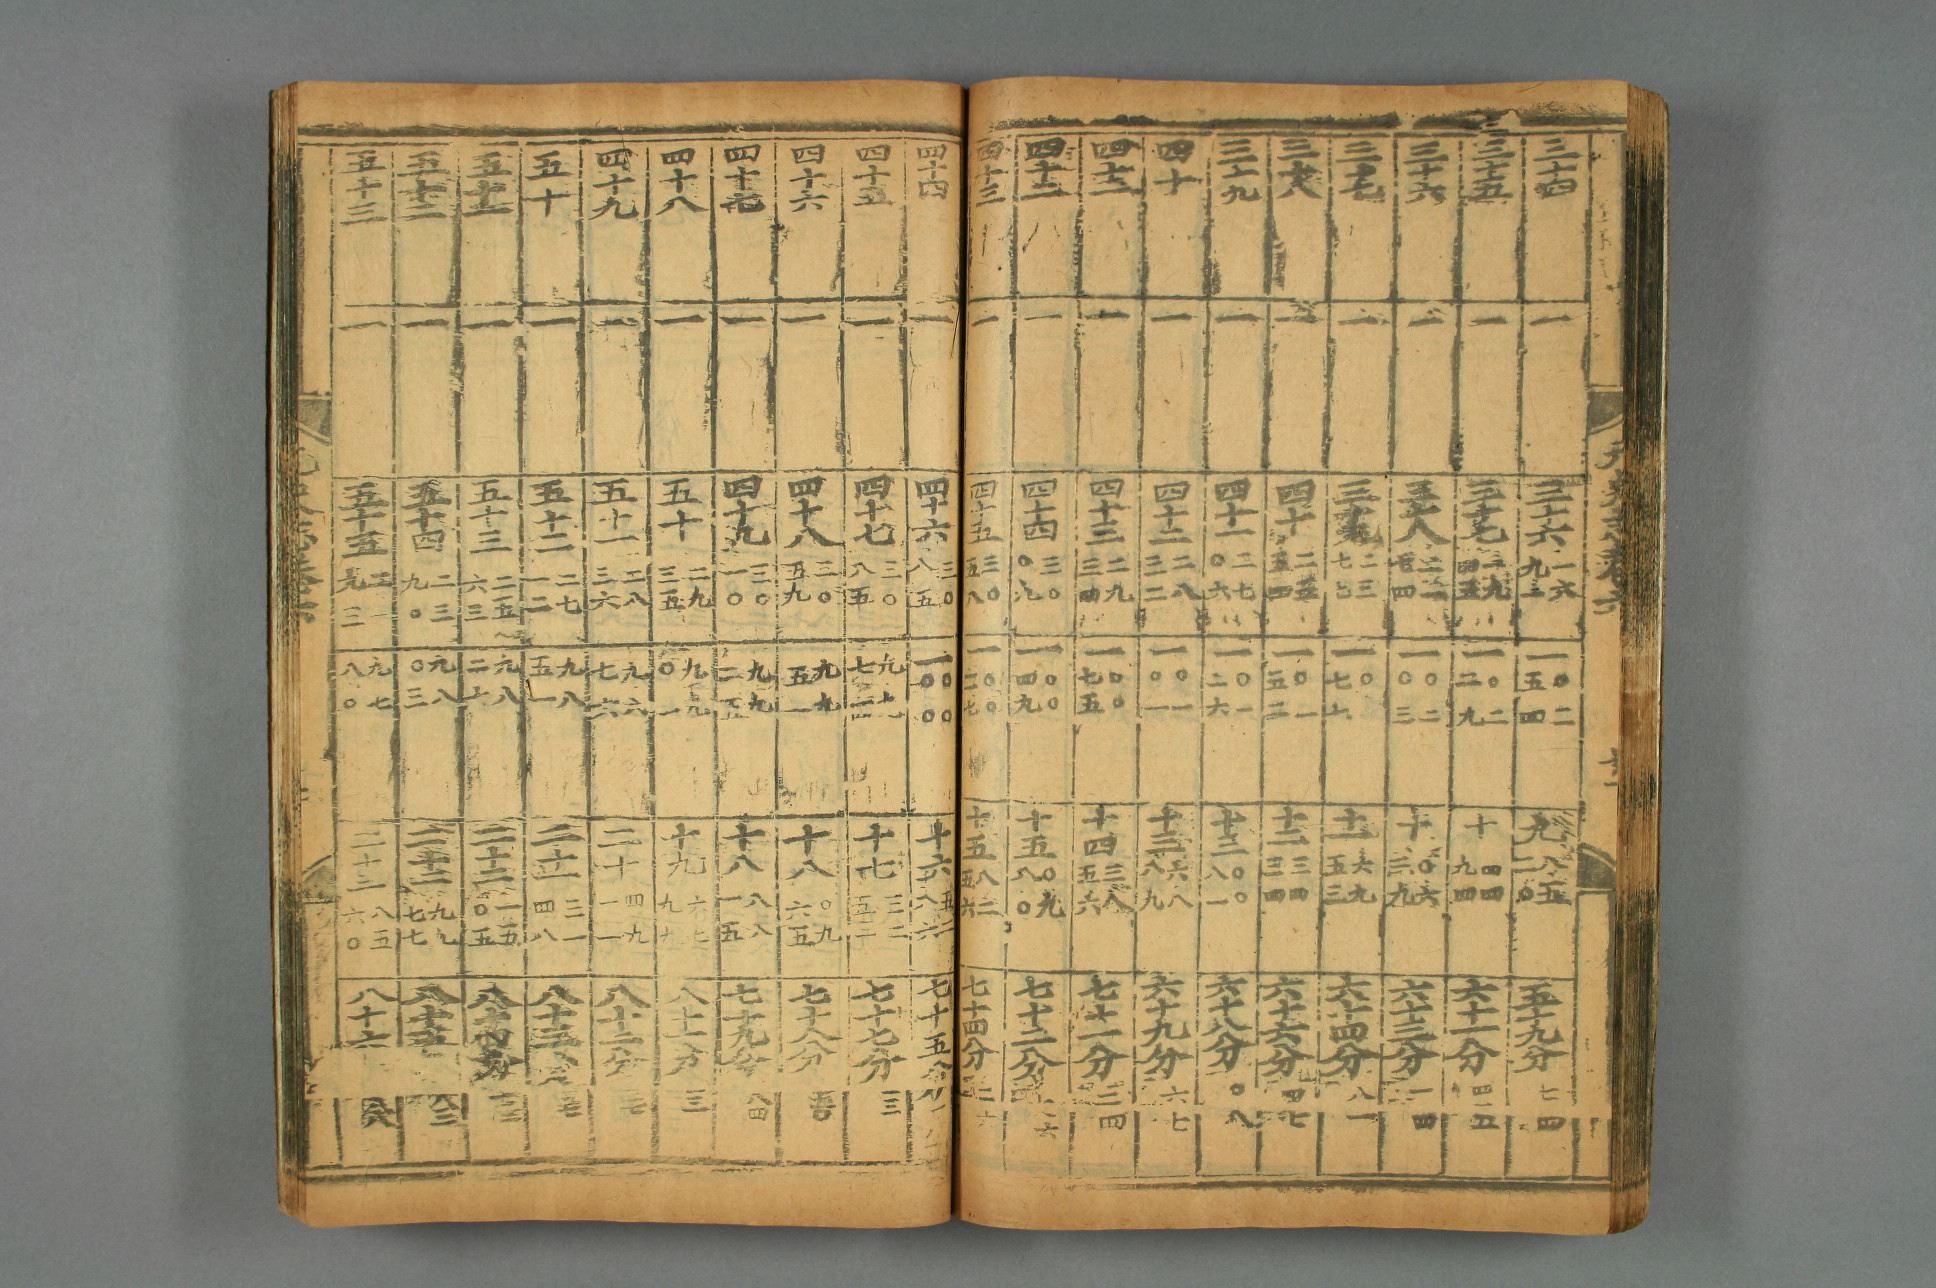 三十四 一 三十六一六九一 一〇二五四 九八五二〇 五十九分七四
三十五 一 三十七一九四五 一〇二二九 十四四九四 六十一分四五
三十六 一 三十八二一七四 一〇二〇三 十一〇六三九 六十三分一四
三十七 一 三十九二三七七 一〇一七七 十一六九五三 六十四分八一
三十八 一 四十二五五四 一〇一五二 十二三四三四 六十六分四七
三十九 一 四十一二七〇六 一〇一二六 十三〇〇八一 六十八分〇八
四十 一 四十二二八三二 一〇一〇一 十三六八八九 六十九分六七
四十一 一 四十三二九三四 一〇〇七五 十四三八五六 七十一分二四
四十二 一 四十四三〇〇九 一〇〇四九 十五〇九八〇 七十二分七六
四十三 一 四十五三〇五八 一〇〇二七 十五八二五六 七十四分二六
四十四 一 四十六三〇八五 一〇〇〇〇 十六五六八二 七十五分
四十五 一 四十七三〇八五 九九七四 十七三二五二 七十七分一三
四十六 一 四十八三〇五九 九九五一 十八〇九六五 七十八分五〇
四十七 一 四十九三〇一〇 九九二五 十八八八一五 七十九分八四
四十八 一 五十二九三五 九九〇一 十九六七九九 八十一分一三
四十九 一 五十一二八三六 九八七六 二十四九一一 八十二分三七
五十 一 五十二二七一二 九八五一 二十一三一四八 八十三分五七
五十一 一 五十三二五六三 九八二七 二十二一五〇五 八十四分七二
五十二 一 五十四二三九〇 九八〇三 二十二九九七七 八十五八三
五十三 一 五十五二一九三 九七八〇 二十三八五六〇 八十六八八